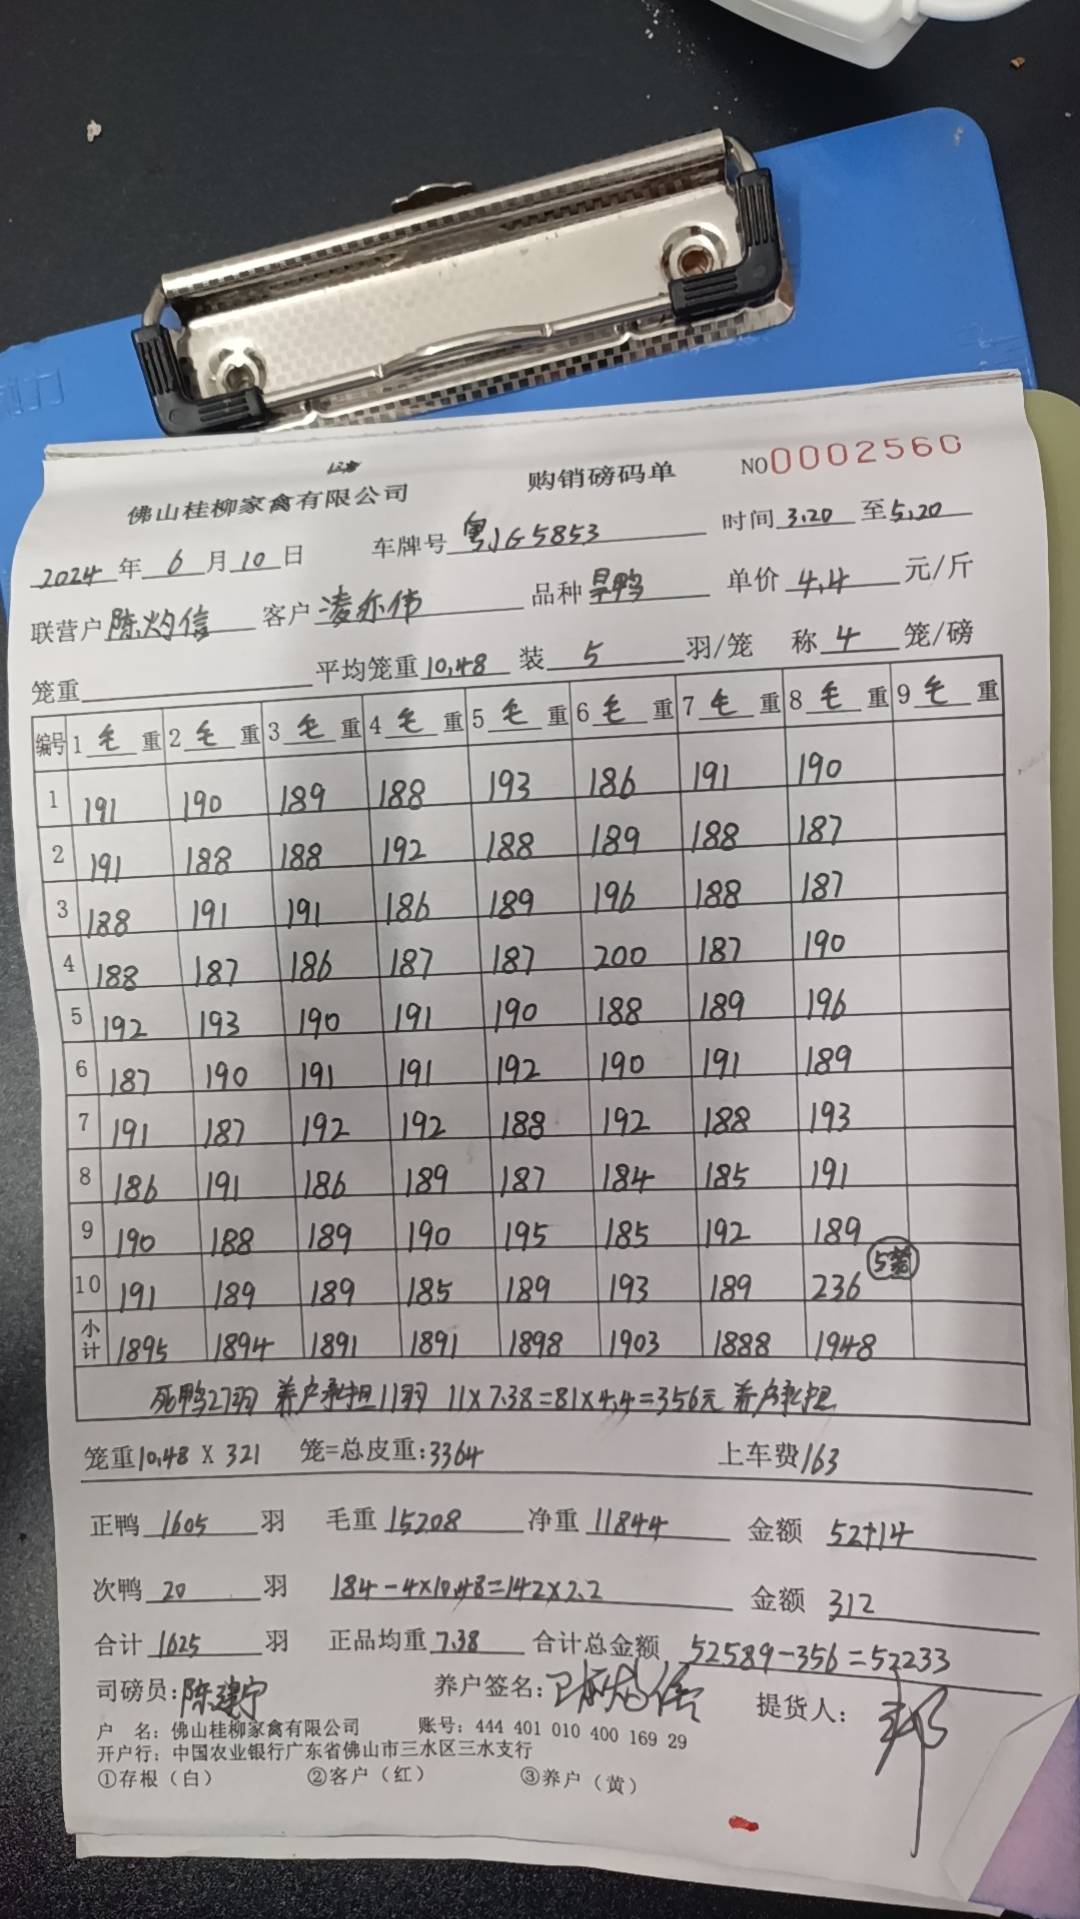 佛山桂柳家禽有限公司 购销磅码单 NO0002560
2024年6月10日 车牌号粤JG5853 时间3.20至5.20
联营户陈灼信 客户凌亦伟 品种旱鸭 单价4.4元/斤
笼重 平均笼重10.48 装5羽/笼 称4笼/磅
编号 1毛重 2毛重 3毛重 4毛重 5毛重 6毛重 7毛重 8毛重 9毛重
1 191 190 189 188 193 186 191 190
2 191 188 188 192 188 189 188 187
3 188 191 191 186 189 196 188 187
4 188 187 186 187 187 200 187 190
5 192 193 190 191 190 188 189 196
6 187 190 191 191 192 190 191 189
7 191 187 192 192 188 192 188 193
8 186 191 186 189 187 184 185 191
9 190 188 189 190 195 185 192 189
10 191 189 189 185 189 193 189 236 5笼
小计 1895 1894 1891 1891 1898 1903 1888 1948
死鸭27羽 养户承担11羽 11×7.38=81×4.4=356元 养户承担
笼重10.48×321 笼=总皮重:3364 上车费163
正鸭1605羽 毛重15208 净重11844 金额52114
次鸭20羽 184-4×10.48=142×2.2 金额312
合计1625羽 正品均重7.38 合计总金额52589-356=52233
司磅员:陈建宁 养户签名: 提货人:
户 名: 佛山桂柳家禽有限公司 账号: 444 401 010 400 169 29
开户行: 中国农业银行广东省佛山市三水区三水支行
①存根(白) ②客户(红) ③养户(黄)